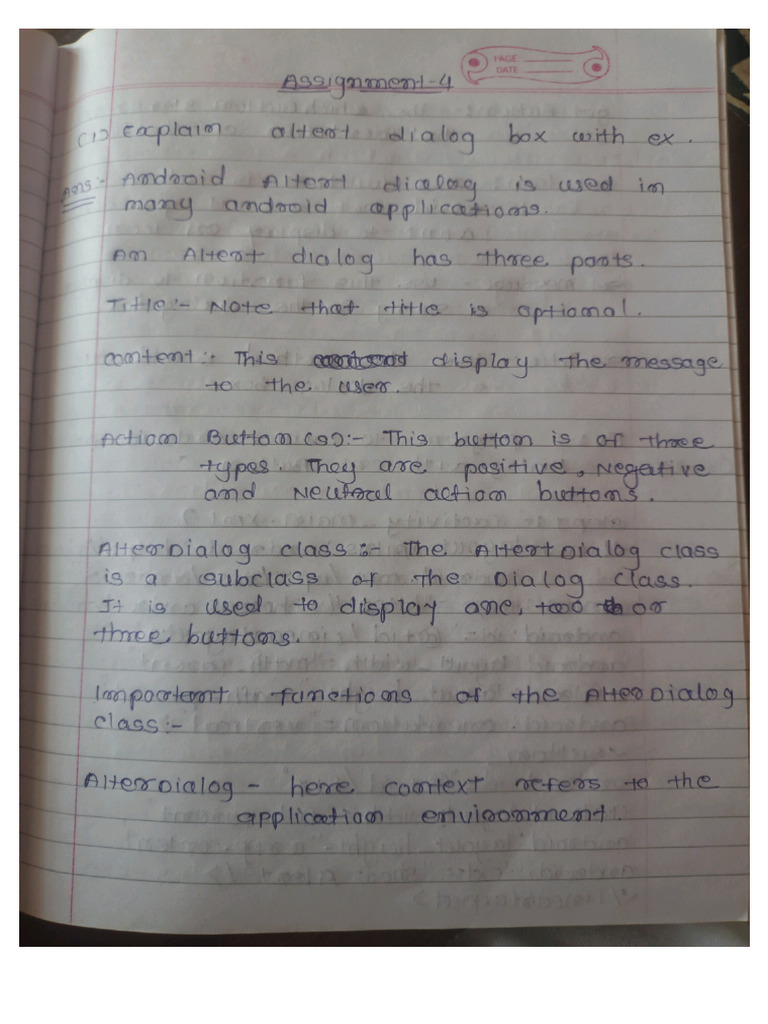 Assignment-4
PAGE
DATE
(1) Explain altert dialog box with ex.
Ans:- Android Altert dialog is used in
many android applications.
An Altert dialog has three parts.
Title:- Note that title is optional.
content:- This display the message
to the user.
Action Button(s):- This button is of three
types. They are positive, Negative
and Neutral action buttons.
AlterDialog class:- The AltertDialog class
is a subclass of the Dialog class.
It is used to display one, two or
three buttons.
Important functions of the AlterDialog
class:-
AlterDialog - here context refers to the
application environment.